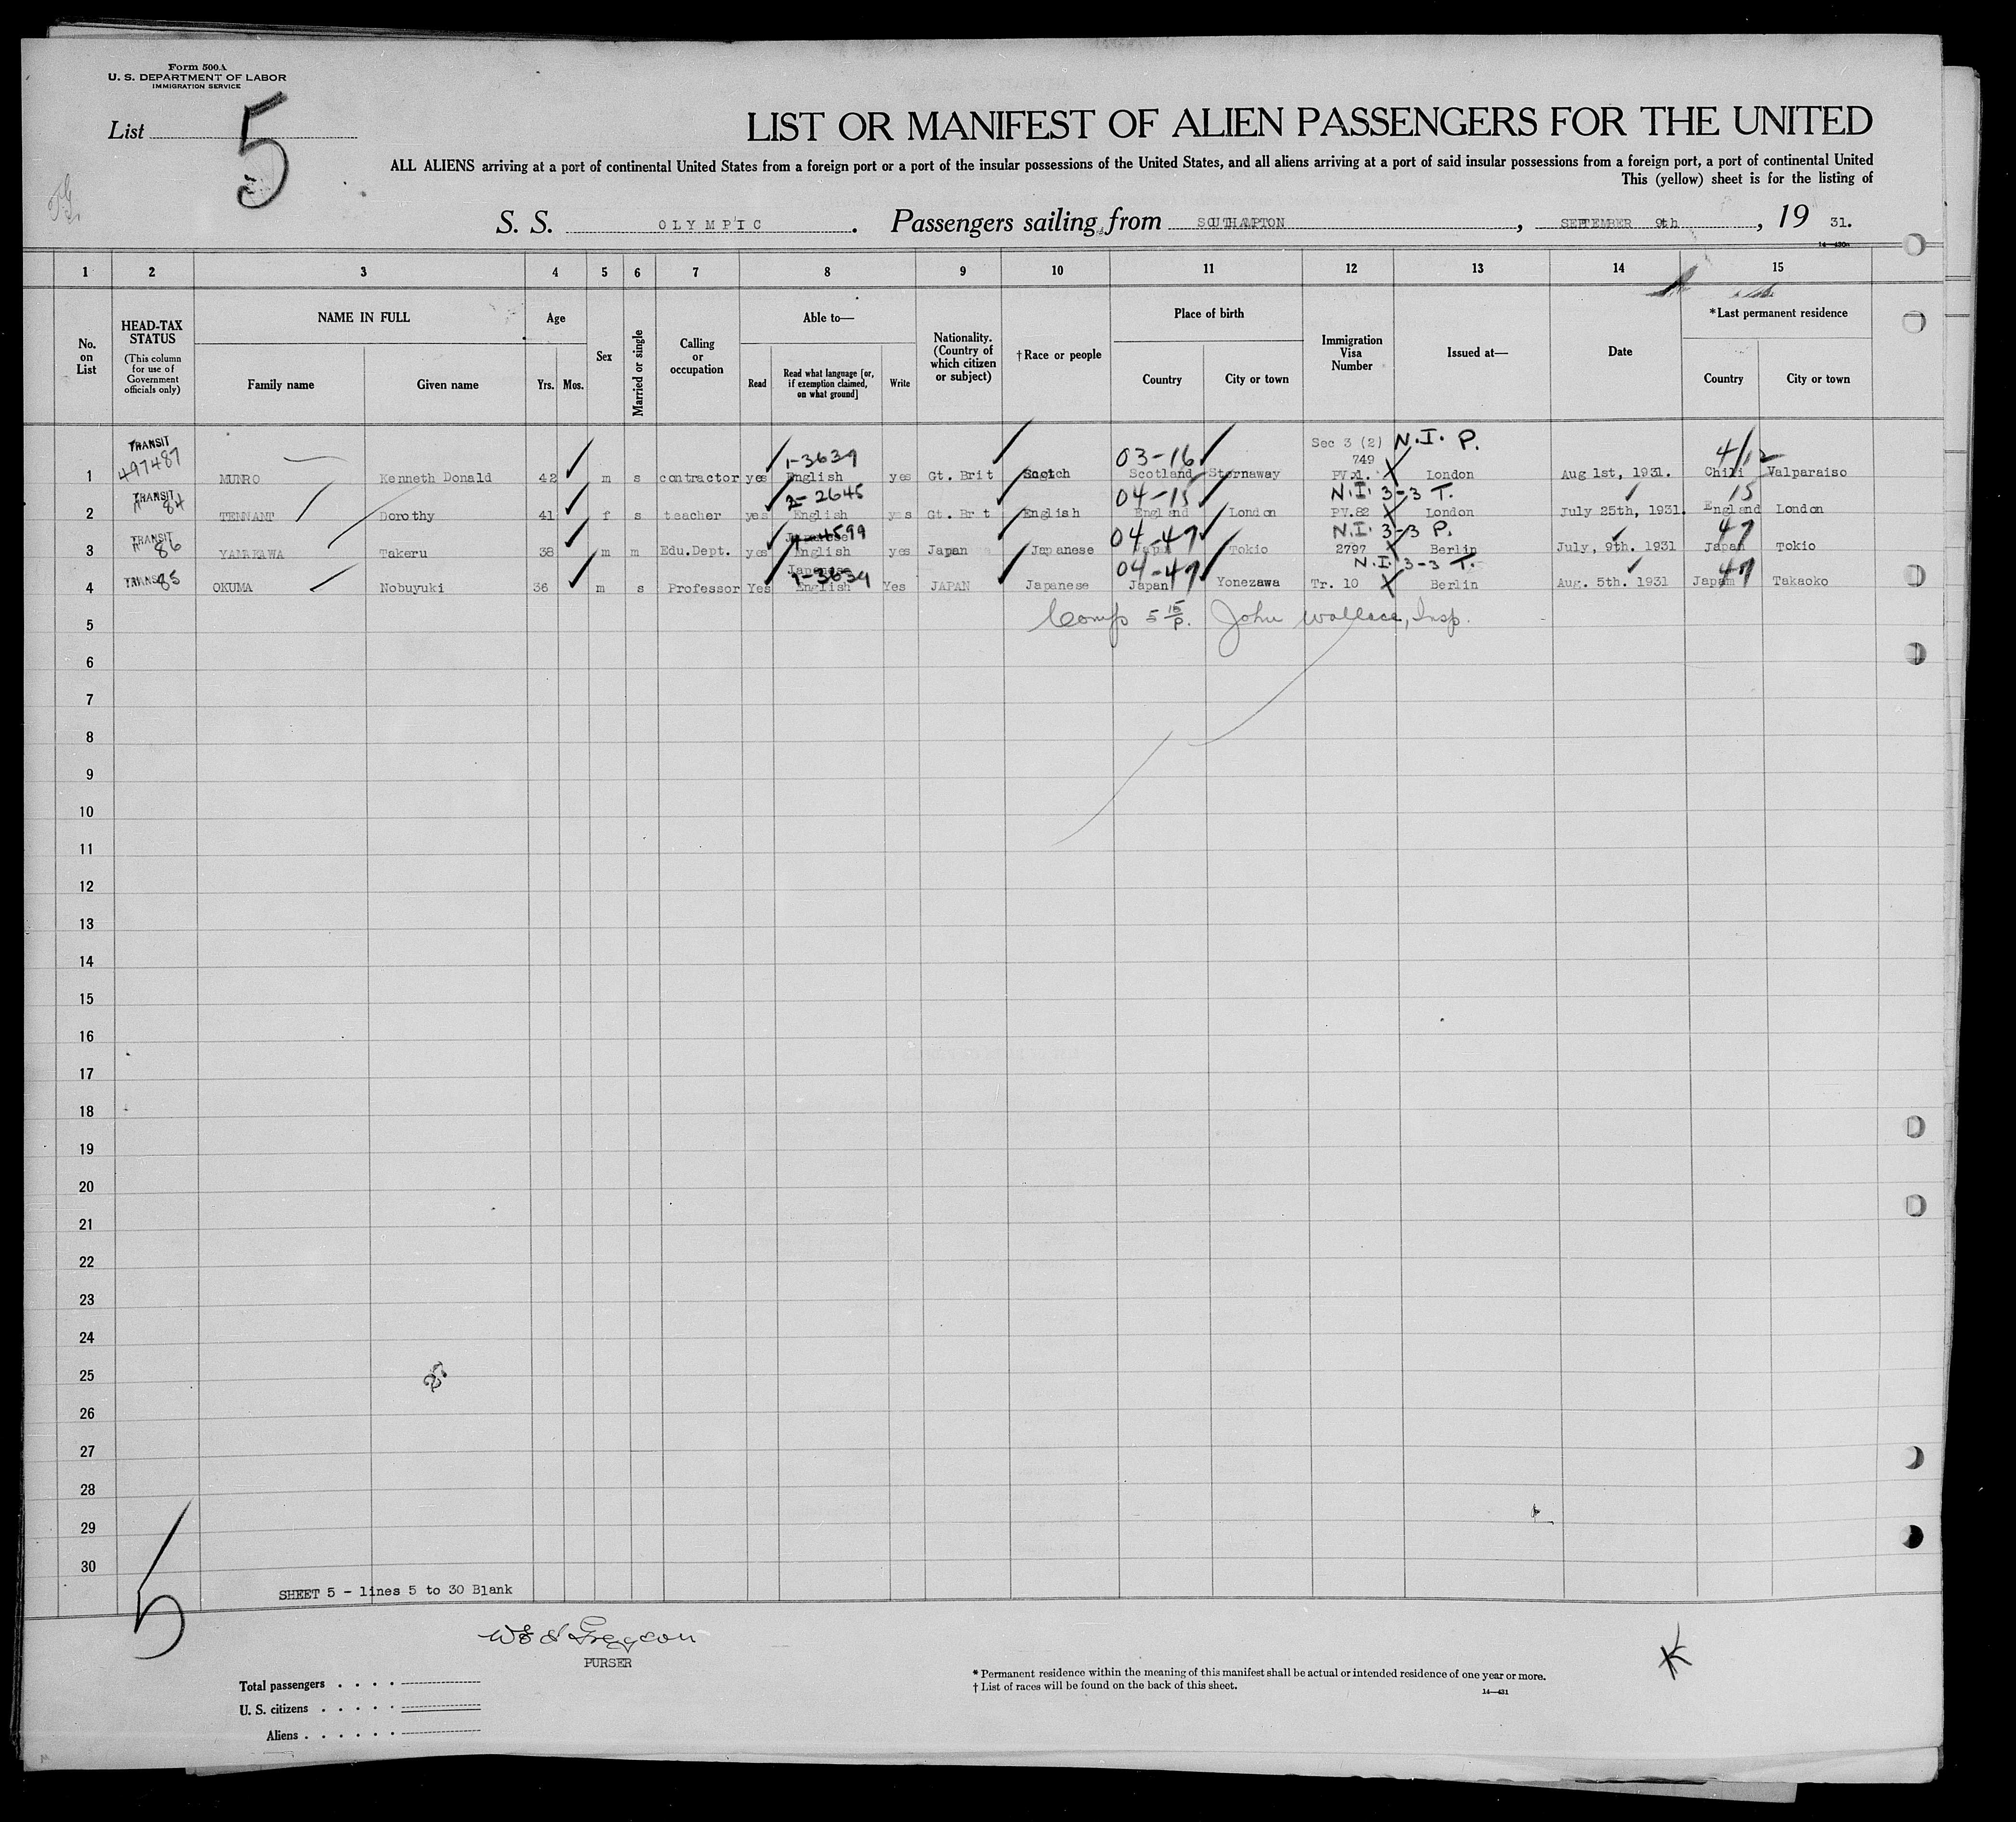 Form 500A
U. S. DEPARTMENT OF LABOR
IMMIGRATION SERVICE
List 5
LIST OR MANIFEST OF ALIEN PASSENGERS FOR THE UNITED
ALL ALIENS arriving at a port of continental United States from a foreign port or a port of the insular possessions of the United States, and all aliens arriving at a port of said insular possessions from a foreign port, a port of continental United
This (yellow) sheet is for the listing of
S. S. OLYMPIC. Passengers sailing from SOUTHAMPTON, SEPTEMBER 9th, 19 31.
14—430a
1 2 3 4 5 6 7 8 9 10 11 12 13 14 15
No. on List
HEAD-TAX STATUS
(This column for use of Government officials only)
NAME IN FULL
Family name Given name
Age
Yrs. Mos.
Sex
Married or single
Calling or occupation
Able to—
Read
Read what language [or, if exemption claimed, on what ground]
Write
Nationality. (Country of which citizen or subject)
†Race or people
Place of birth
Country City or town
Immigration Visa Number
Issued at—
Date
*Last permanent residence
Country City or town
TRANSIT 497487 1-3639 03-16 Sec 3 (2) N.I. P. 4/12
749
1 MUNRO Kenneth Donald 42 m s contractor yes English yes Gt. Brit Scotch Scotland Stornaway PV.1. London Aug 1st, 1931. Chili Valparaiso
TRANSIT 84 2-2645 04-15 N.I. 3-3 T. 15
2 TENNANT Dorothy 41 f s teacher yes English yes Gt. Brit English England London PV.82 London July 25th, 1931. England London
TRANSIT 86 Japanese 04-47 N.I. 3-3 P. 47
3 Takeru 38 m m Edu.Dept. yes English yes Japan Japanese Japan Tokio 2797 Berlin July, 9th. 1931 Japan Tokio
TRANSIT 85 Japanese 1-3639 04-47 N.I. 3-3 T. 47
4 OKUMA Nobuyuki 36 m s Professor Yes English Yes JAPAN Japanese Japan Yonezawa Tr. 10 Berlin Aug. 5th. 1931 Japan Takaoko
Comp 5 15/P. John Wallace, Insp.
5
6
7
8
9
10
11
12
13
14
15
16
17
18
19
20
21
22
23
24
25
26
27
28
29
30
SHEET 5 - lines 5 to 30 Blank
5
PURSER
K
Total passengers
U. S. citizens
Aliens
* Permanent residence within the meaning of this manifest shall be actual or intended residence of one year or more.
† List of races will be found on the back of this sheet.
14—431